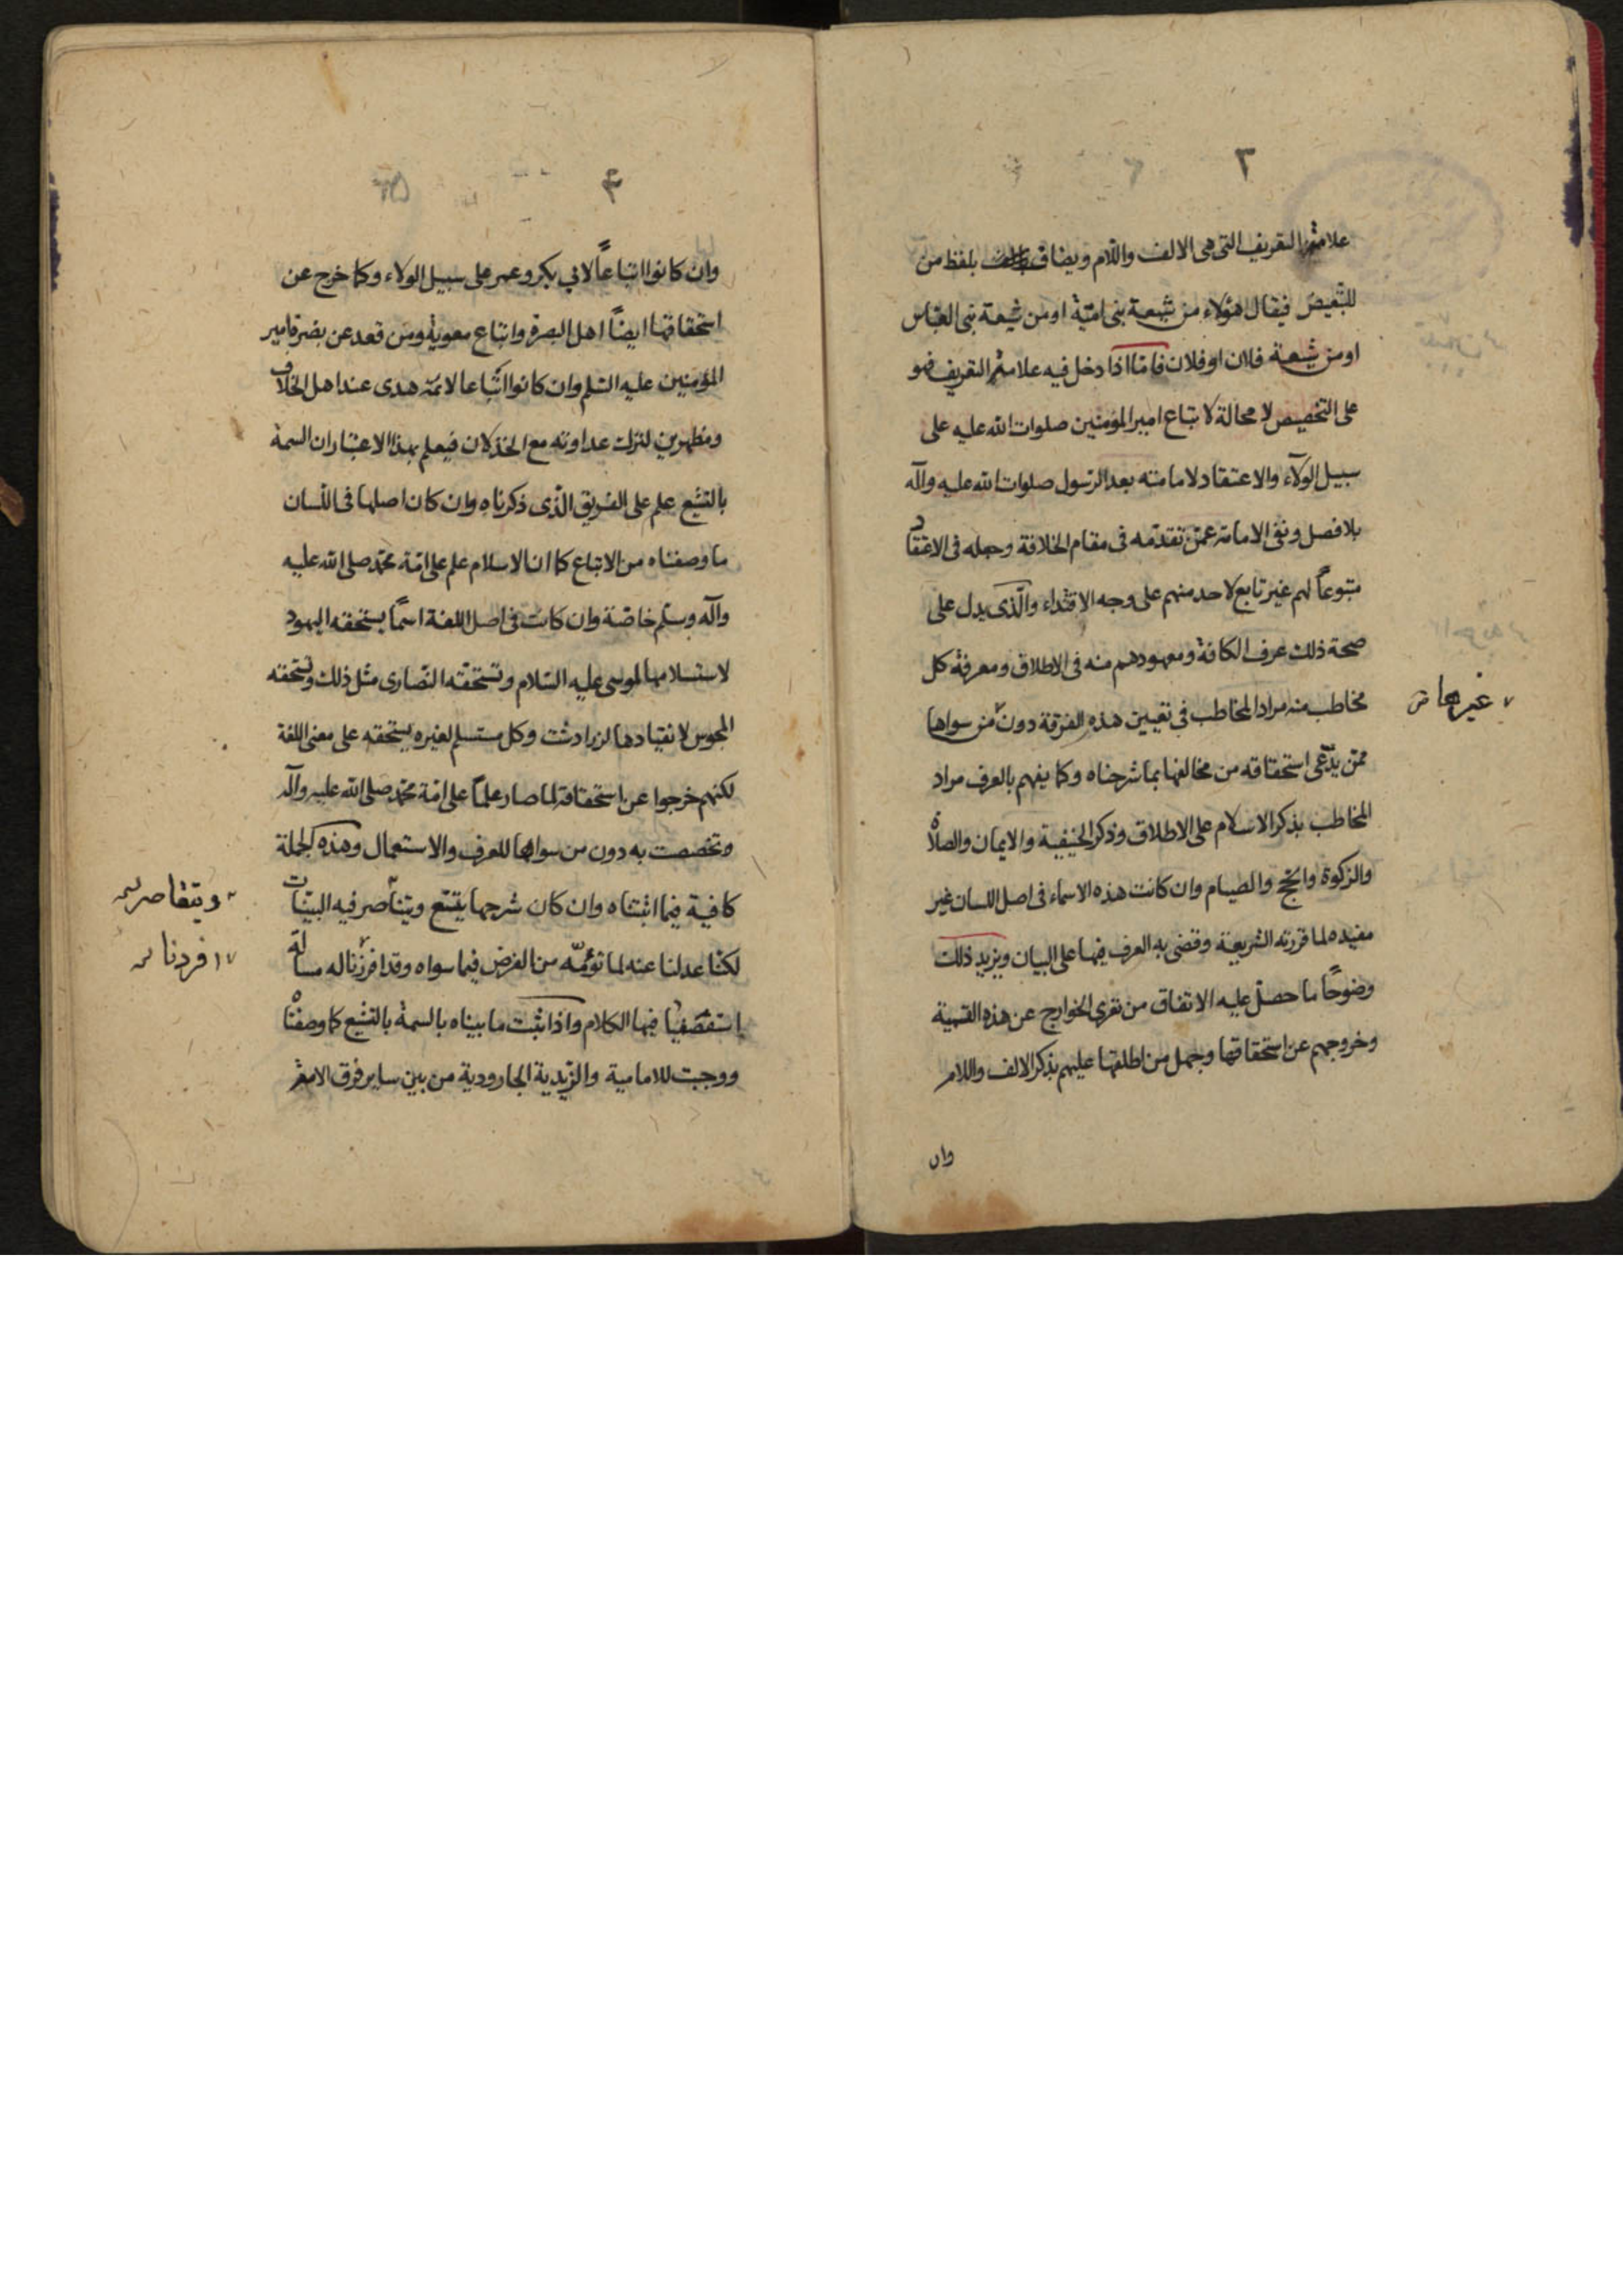 ٣
علامة التعريف التى هى الالف واللام ويضاف بلفظ من
للتبعيض فيقال هؤلاء من شيعة بنى اميّة او من شيعة بنى العبّاس
او من شيعة فلان او فلان فامّا اذا دخل فيه علامة التعريف فهو
على التخصيص لا محالة لاتباع امير المؤمنين صلوات الله عليه على
سبيل الولآء والاعتقاد لامامته بعد الرّسول صلوات الله عليه وآله
بلا فصل ونفى الامامة عمّن تقدّمه فى مقام الخلافة وجعله فى الاعتقاد
متبوعاً لهم غير تابع لاحد منهم على وجه الاقتداء والّذى يدل على
صحة ذلك عرف الكافة ومعهودهم منه فى الاطلاق ومعرفة كل
مخاطب منه مراد المخاطب فى تعيين هذه الفرقة دون من سواها
غيرها
ممّن يدّعى استحقاقه من مخالفيها بما شرحناه وكما يفهم بالعرف مراد
المخاطب بذكر الاسلام على الاطلاق وذكر الحنيفية والايمان والصلاة
والزكوة والحج والصيام وان كانت هذه الاسماء فى اصل اللسان غير
مفيده لما قررته الشريعة وقضى به العرف فيها على البيان ويزيد ذلك
وضوحاً ما حصل عليه الاتفاق من تعرى الخوارج عن هذه التسمية
وخروجهم عن استحقاقها وجهل من اطلقها عليهم بذكر الالف واللام
وان
۴
وان كانوا اتباعاً لابي بكر وعمر على سبيل الولاء وكما خرج عن
استحقاقها ايضاً اهل البصرة واتباع معوية ومن قعد عن نصرة امير
المؤمنين عليه السّلم وان كانوا اتّباعا لائمّه هدى عند اهل الخلاف
ومظهرين لترك عداوته مع الخذلان فيعلم بهذا الاعتبار ان السمة
بالتشيع علم على الفريق الّذى ذكرناه وان كان اصلها فى اللسان
ما وصفناه من الاتباع كما ان الاسلام علم على امّة محمّد صلى الله عليه
وآله وسلّم خاصّة وان كانت فى اصل اللغة اسماً يستحقه اليهود
لاستسلامها لموسى عليه السّلام وتستحقه النّصارى مثل ذلك وتستحقه
المجوس لانقيادها لزرادشت وكل مستسلم لغيره يستحقه على معنى اللغة
لكنهم خرجوا عن استحقاقه لما صار علماً على امّة محمّد صلى الله عليه وآله
وتخصصت به دون من سواها للعرف والاستعمال وهذه الجملة
كافية فيما اثبتناه وان كان شرحها يتسّع ويتناصر فيه البيّنات
ويتقاصر
لكنّا عدلنا عنه لما نؤمّه من الغرض فيما سواه وقد افرزنا له مسالة
افردنا
استقصينا فيها الكلام واذا ثبت ما بيناه بالسمة بالتشيع كما وصفناه
ووجبت للامامية والزّيدية الجارودية من بين ساير فرق الامة